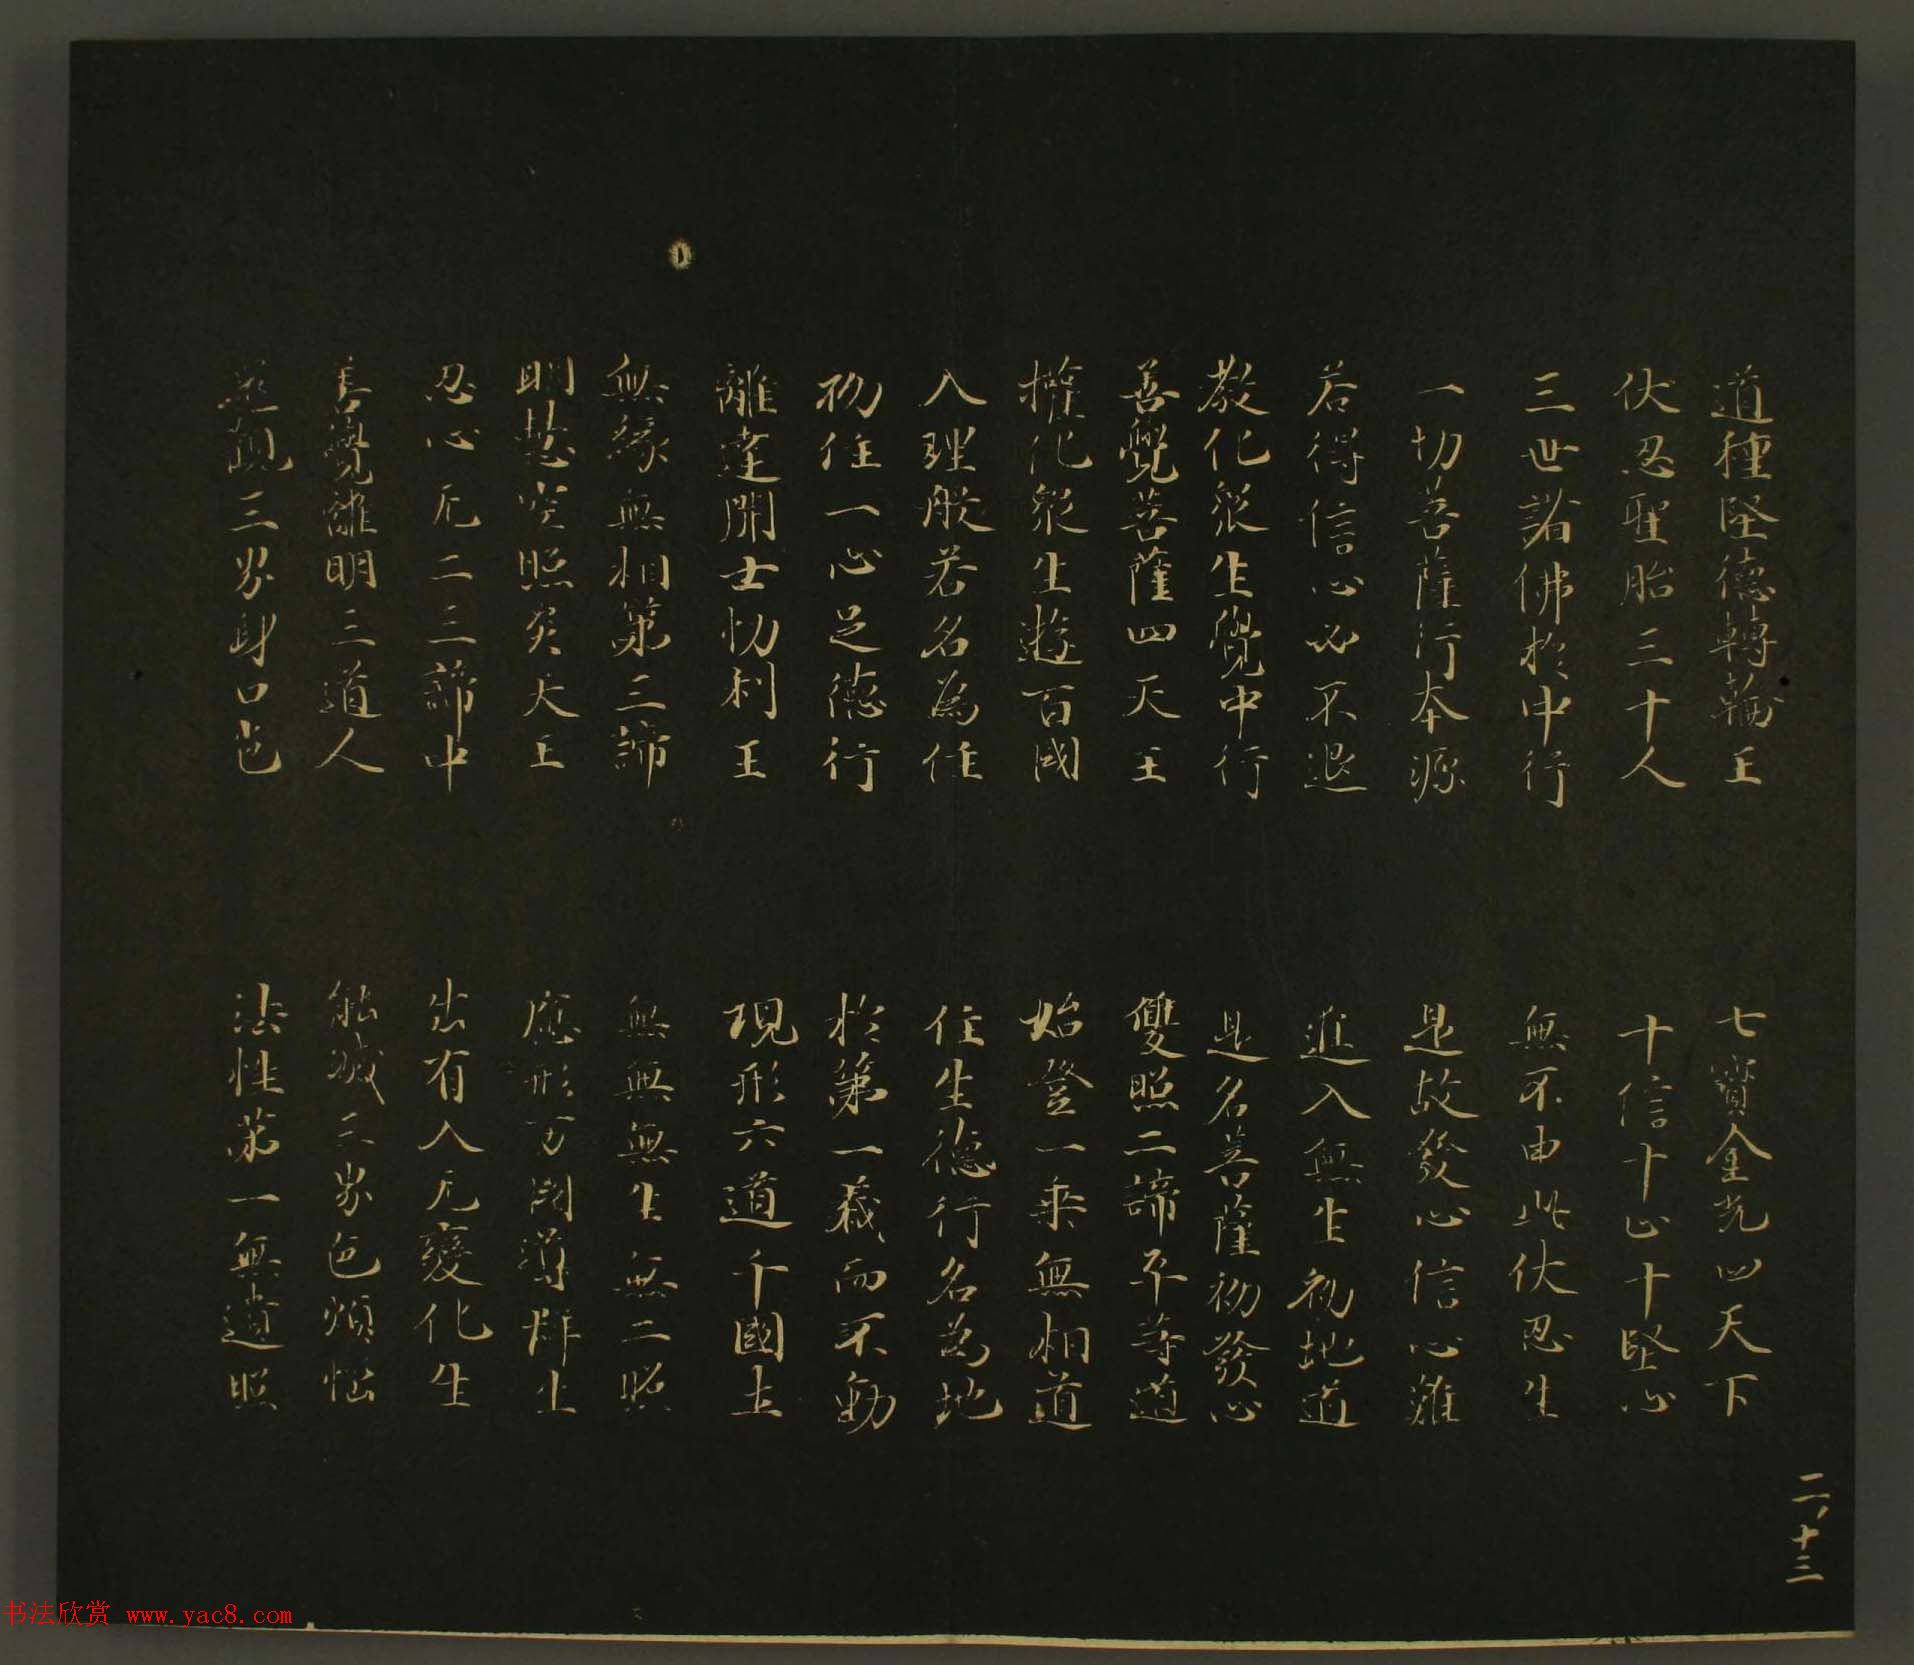 道種堅德轉輪王
七寶金光四天下
伏忍聖胎三十人
十信十心十堅心
三世諸佛於中行
無不由此伏忍生
一切菩薩行本源
是故發心信心難
若得信心必不退
進入無生初地道
教化眾生覺中行
是名菩薩初發心
善覺菩薩四天王
雙照二諦平等道
權化眾生遊百國
始登一乘無相道
入理般若名為住
住生德行名為地
初住一心足德行
於第一義而不動
離達開士忉利王
現形六道千國土
無緣無相第三諦
無無無生無二照
明慧空照炎天王
應形万國導群生
忍心无二三諦中
出有入无變化生
善覺離明三道人
能滅三界色煩惱
還觀三界身口色
法性第一無遺照
二、十三
书法欣赏 www.yac8.com